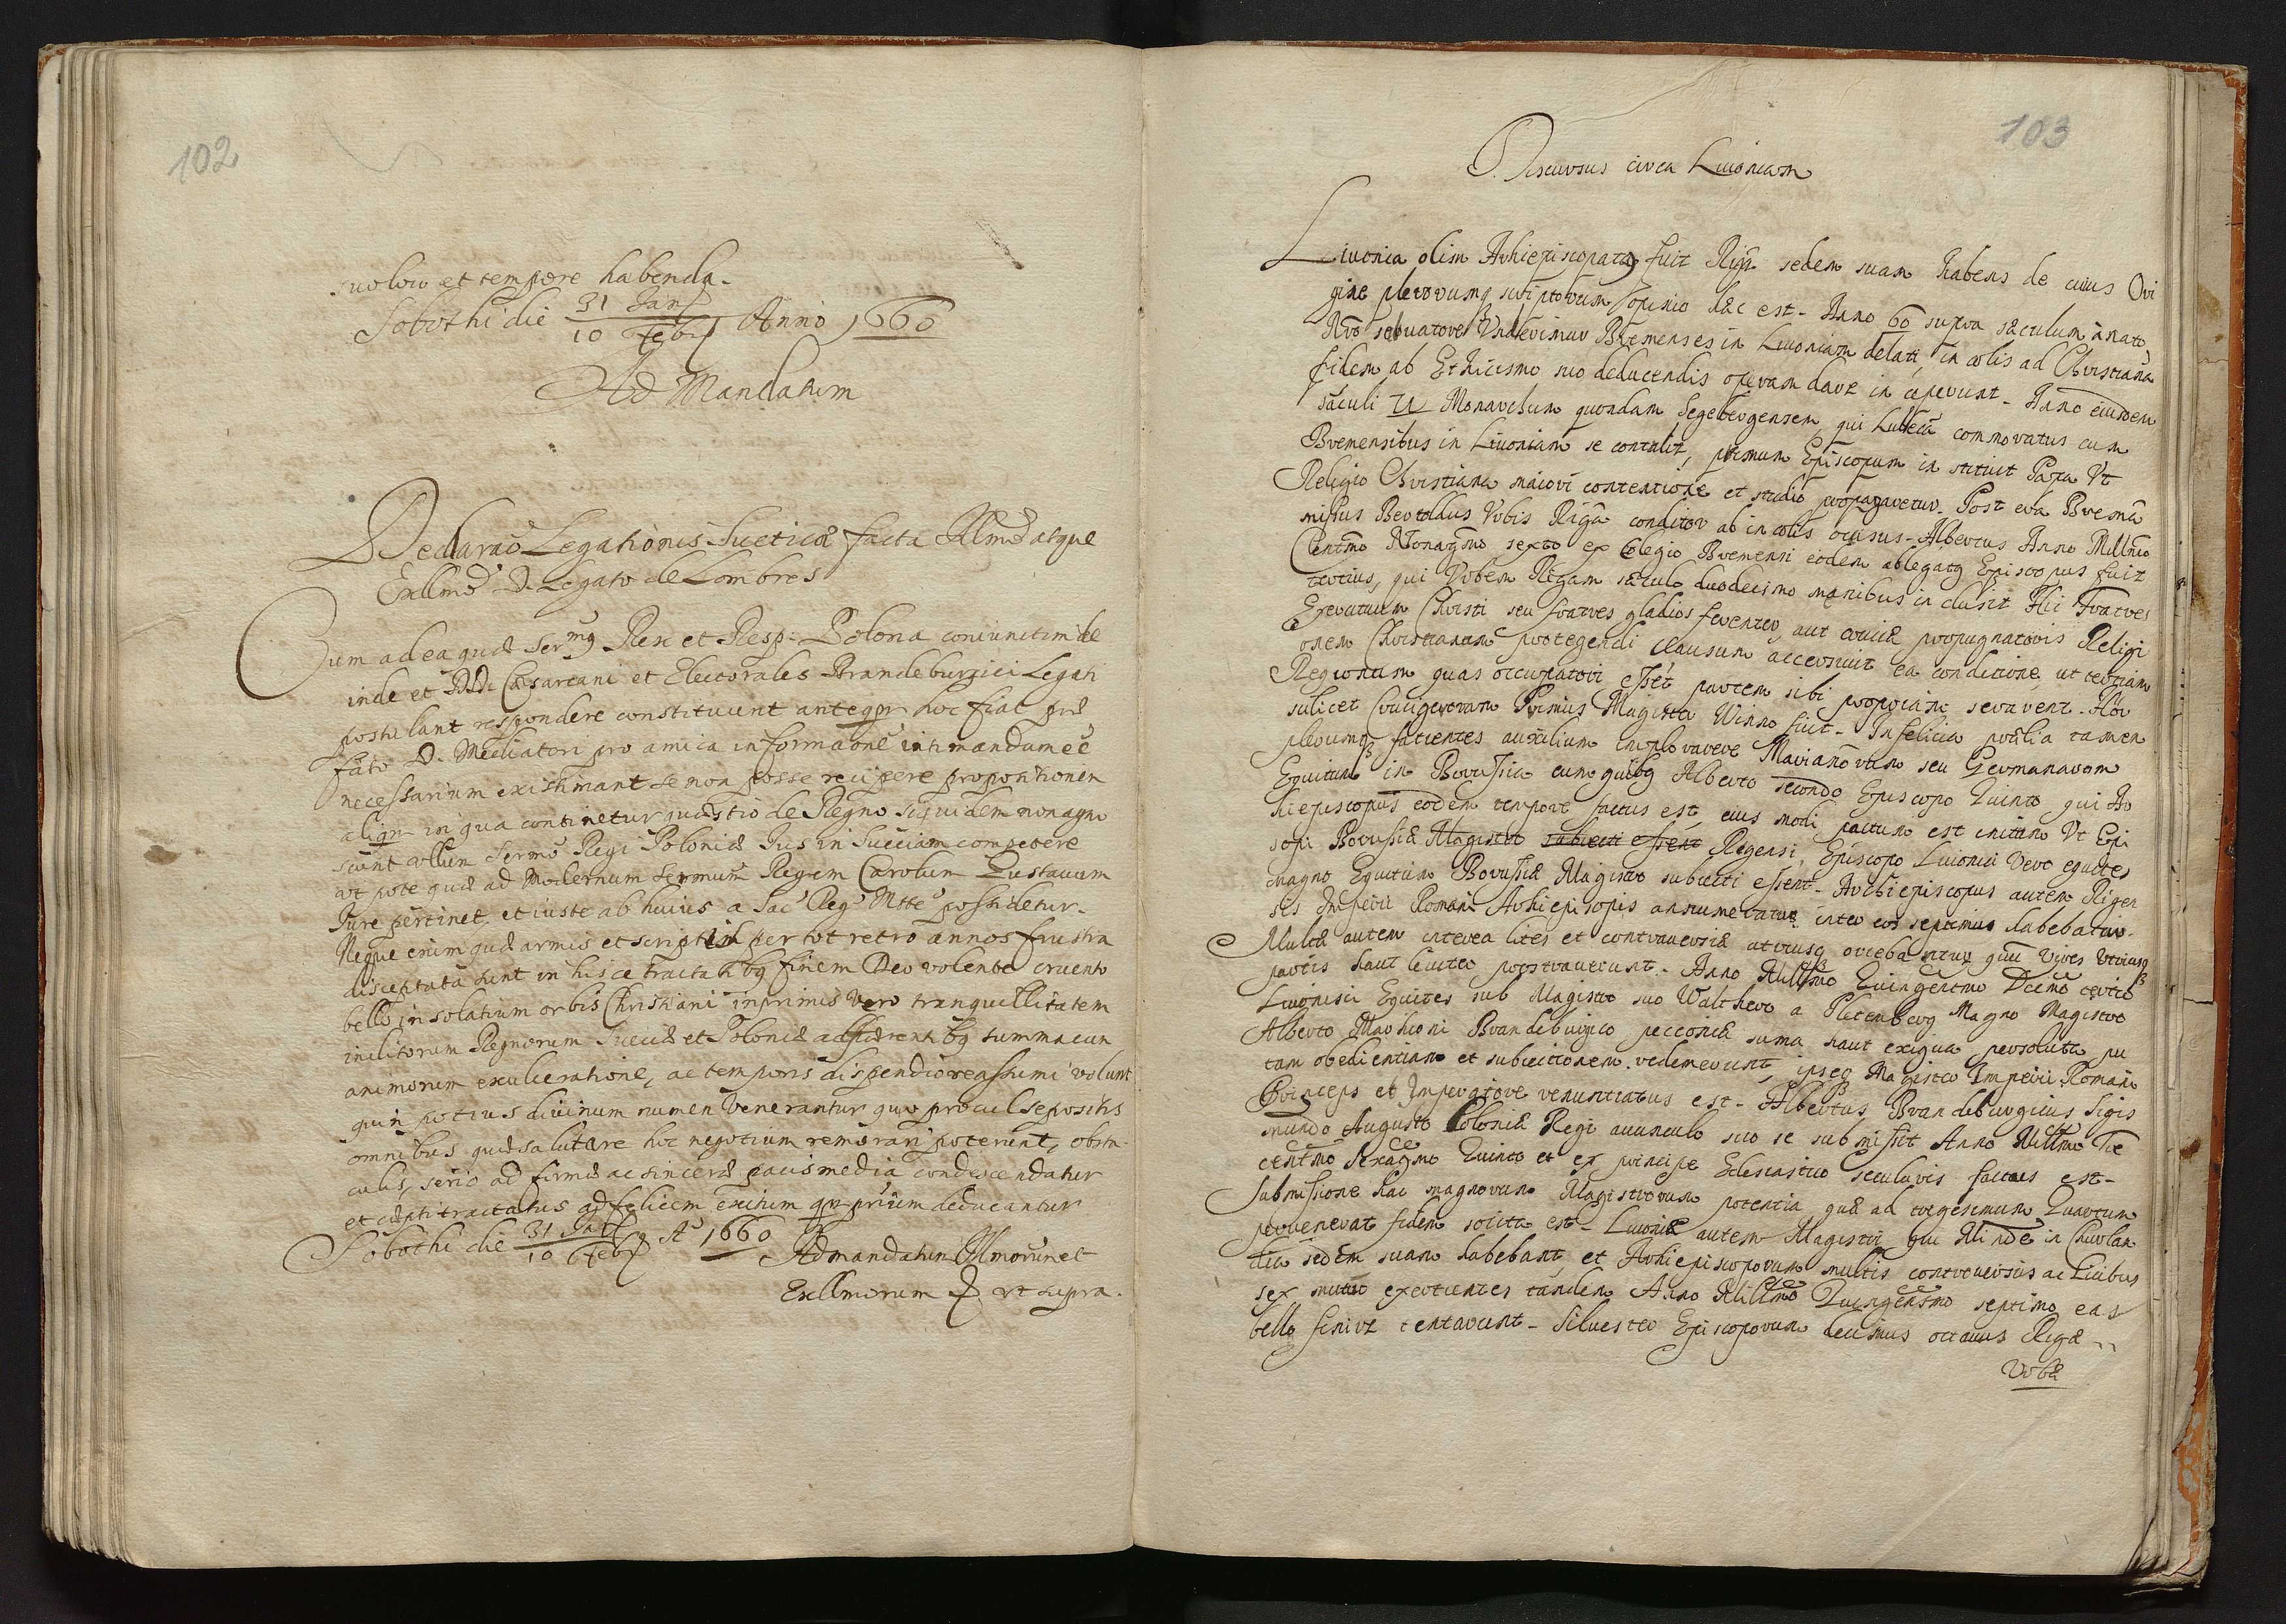 102
suo loco et tempore habenda.
Sobothi die 31 Jan / 10 Febr Anno 1660
Ad Mandatum
Declarao Legationis Sueticæ facta Illmo atque
Exllmo D. Legato de Lombres
Cum ad ea quæ Sermg Rex et Resp: Polona coniunctim de
inde et DD. Cæsareani et Electorales Brandeburgici Legati
postulant respondere constituunt anteqr hoc fiat præ
fato D. Mediatori pro amica informaone intimandum eē
necessarium existimant se non posse recipere propositionem
aliqr in qua continetur quæstio de Regno siquidem non agno
scunt ullum Sermo Regi Poloniæ Jus in Sueciam competere
ut pote quæ ad Modernum Sermum Regem Carolum Gustauum
Jure pertinet, et iuste ab huius a Sac Reg Mtte possidetur.
Neque enim quæ armis et scriptis per tot retro annos frustra
disceptata sunt in hisce tractatibg finem Deo volente cruento
bello in solatium orbis Christiani inprimis vero tranquillitatem
inclitorum Regnorum Sueciæ et Poloniæ summa cum
animorum exulceratione, ac temporis dispendio reassumi volunt
quin potius diuinum numen venerantur quo procul sepositis
omnibus quæ salutare hoc negotium remorari poterunt, obsta-
culis, serio ad firmæ ac sinceræ pacis media condescendatur
et cæpti tractatus ad felicem exitum qr primum deducantur
Sobothi die 31 Jan / 10 Febr Ao 1660
Ad mandatum Illmorum et
Exllmorum D vt supra.
103
Discursus circa Liuoniam
Liuonia olim Archiepiscopatg fuit Rigæ sedem suam habens de cuius Ori
gine plerorumq scriptorum opinio hæc est. Anno 60 supra sæculum a nato
Nro Saluatore Vndecimum Bremenses in Liuoniam delati, incolis ad Christianā
fidem ab Ethnicismo suo deducendis operam dare in ceperunt. Anno eiusdem
sæculi Monachum quondam Segebergensem, qui Lubecā commoratus cum
Bremensibus in Liuoniam se contulit, primum Episcopum in stituit Papa Vt
Religio Christiana maiori contentione et studio propagaretur. Post ea Bremā
missus Bertoldus Vrbis Rigæ conditor ab incolis occisus. Albertus Anno Millmo
Centmo Nonagmo sexto ex Colegio Bremensi eodem ablegatg Episcopus fuit
tertius, qui Vrbem Rigam sæculo duodecimo mænibus in clusit Hic Fratres
Exercituum Christi seu fratres gladios ferentes, aut crucis propugnatores Religi
onem Christianam protegendi causam accersiuit ea conditione, ut tertiam
Regionum quas occupaturi essēt partem sibi propriam seruarent. Hor
scilicet Crucigerorum Primus Magister Winno fuit. Infelicia prælia tamen
plerumq facientes auxilium implorauere Marianorum seu Germanorum
Equitum in Borussia cum quibg Alberto secondo Episcopo Quinto, qui Ar
chiepiscopus eodem tempore factus est, eius modi pactum est initum Vt Epi
scopi Borussiæ Magistro subiecti essent Rigensi, Episcopo Liuonici vero equites
magno Equitum Borussiæ Magistro subiecti essent. Archiepiscopus autem Rigen
sis Imperii Romani Archiepiscopis annumeratur inter eos septimus habebatur.
Multæ autem interea lites et controuersiæ utriusq oriebantur quæ Vires Vtriusq
partis haut leuiter prostrauerunt. Anno Millmo Quingentmo Dcmo tertio
Liuonici Equites sub Magistro suo Walthero a Pletenberg Magno Magistro
Alberto Marchioni Brandeburgico pecconiæ suma haut exigua persoluta pu
tam obedientiam et subiectionem redemerunt, ipseq Magister Imperii Romani
Princeps et Imperatore renuntiatus est. Albertus Brandeburgicus Sigis
mundo Augusto Poloniæ Regi auunculo suo se submisit Anno Millmo Tre
centmo Sexagmo Quinto et ex principe Eclesiastico secularis factus est.
Submissione hac magnorum Magistrorum potentia, quæ ad tregesimum Quartum
peruenerat fidem solita est. Liuoniæ autem Magistri qui Mindē in Churlan
dia sedem suam habebant, et Archiepiscoporum multis controuersiis ac Litibus
sex mutuo exercientes tandem Anno Millmo Quingentmo septimo eas
bello finire tentarunt. Siluester Episcoporum decimus octauus Rigæ
Vrbē